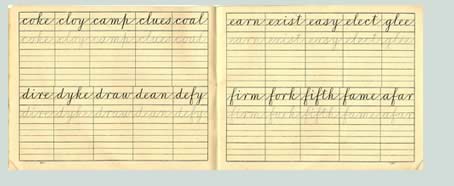 coke cloy camp clues coal
coke cloy camp clues coal
dire dyke draw dean defy
dire dyke draw dean defy
earn exist easy elect glee
earn exist easy elect glee
firm fork fifth fame afar
firm fork fifth fame afar